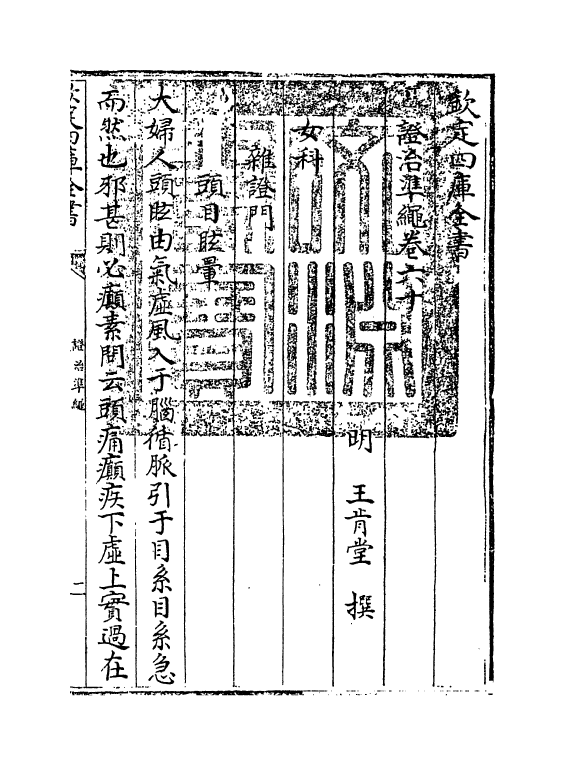 欽定四庫全書
證治準繩卷六十
明 王肯堂 撰
女科
雜證門
頭目眩暈
大婦人頭眩由氣虛風入于腦循脈引于目系目系急
而然也邪甚則必癲素問云頭痛癲疾下虛上實過在
欽定四庫全書
證治準繩
二